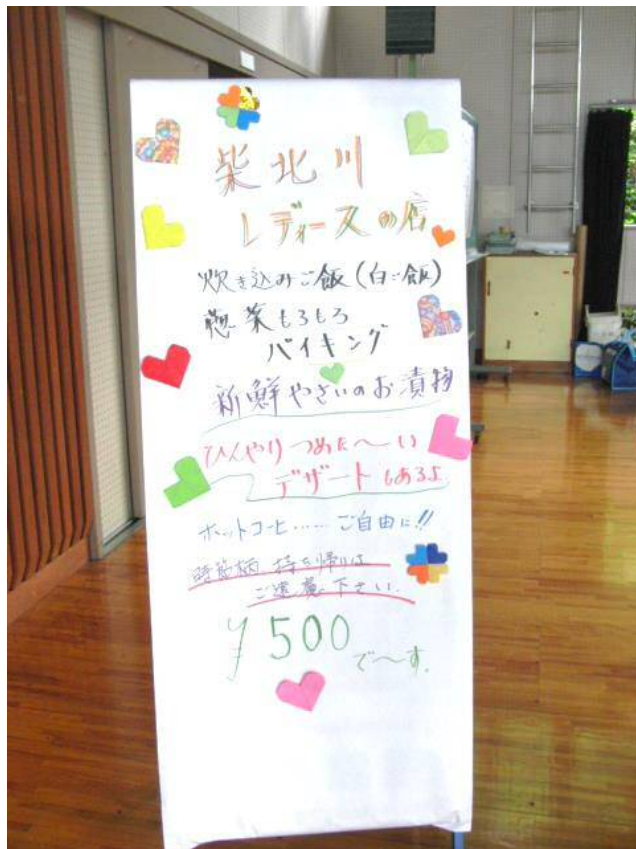 柴北川
レディースの店
炊き込みご飯(白ご飯)
惣菜もろもろ
バイキング
新鮮やさいのお漬物
ひんやりつめた〜い
デザートもあるよ
ホットコーヒー……ご自由に!!
時節柄 持ち帰りは
ご遠慮下さい。
¥500で〜す。